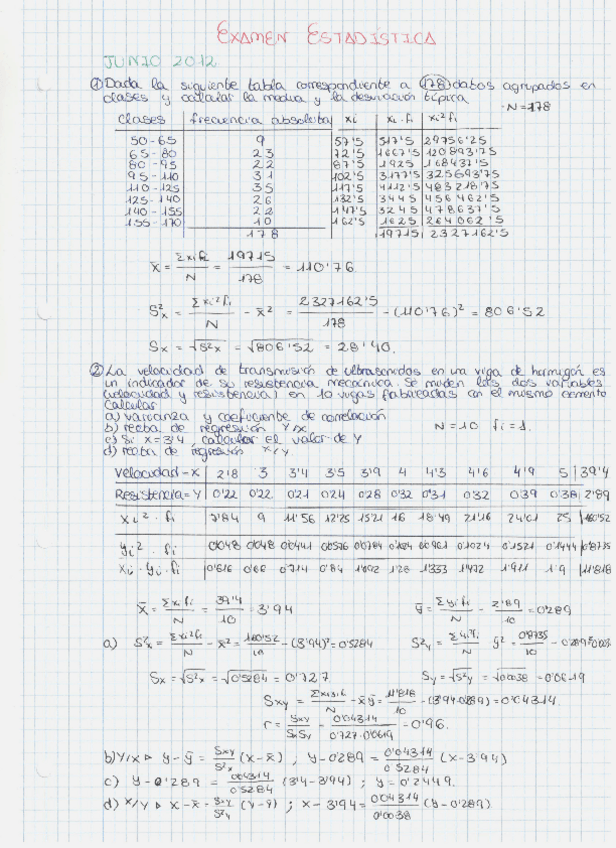 EXAMEN ESTADISTICA
JUNIO 2012
① Dada la siguiente tabla correspondiente a 178 datos agrupados en
clases y calcular la media y la desviación típica
· N=178
Clases frecuencia absoluta xi xi·fi xi²fi
50-65 9 57'5 517'5 29756'25
65-80 23 72'5 1667'5 120893'75
80-95 22 87'5 1925 168437'5
95-110 31 102'5 3177'5 325693'75
110-125 35 117'5 4112'5 483218'75
125-140 26 132'5 3445 456462'5
140-155 22 147'5 3245 478637'5
155-170 10 162'5 1625 264062'5
178 19715 2327162'5
x̄ = Σxifi / N = 19715 / 178 = 110'76
S²x = Σxi²fi / N - x̄² = 2327162'5 / 178 - (110'76)² = 806'52
Sx = √S²x = √806'52 = 28'40.
② La velocidad de transmisión de ultrasonidos en una viga de hormigón es
un indicador de su resistencia mecánica. Se miden las dos variables
(velocidad y resistencia) en 10 vigas fabricadas con el mismo cemento
Calcular
a) varianza y coeficiente de correlación
b) recta de regresión Y/x N=10 fi=1.
c) Si x=3'4, calcular el valor de Y
d) recta de regresión x/y
Velocidad=X 2'8 3 3'4 3'5 3'9 4 4'3 4'6 4'9 5 39'4
Resistencia=Y 0'22 0'22 0'21 0'24 0'28 0'32 0'31 0'32 0'39 0'38 2'89
xi²·fi 7'84 9 11'56 12'25 15'21 16 18'49 21'16 24'01 25 160'52
yi²·fi 0'048 0'048 0'0441 0'0576 0'0784 0'0961 0'1024 0'1521 0'1444 0'8735
xi·yi·fi 0'616 0'66 0'714 0'84 1'092 1'28 1'333 1'472 1'911 1'9 11'818
x̄ = Σxifi / N = 39'4 / 10 = 3'94 ȳ = Σyifi / N = 2'89 / 10 = 0'289
a) S²x = Σxi²fi / N - x̄² = 160'52 / 10 - (3'94)² = 0'5284 S²y = Σyi²fi / N ȳ² = 0'8735 / 10 - 0'289²
Sx = √S²x = √0'5284 = 0'727 Sy = √S²y = √0'0038 = 0'0619
Sxy = Σxiyifi / N - x̄ȳ = 11'818 / 10 - (3'94·0'289) = 0'04314.
r = Sxy / SxSy = 0'04314 / 0'727·0'0619 = 0'96.
b) Y/x ▷ y-ȳ = Sxy / S²x (x-x̄) ; y-0'289 = 0'04314 / 0'5284 (x-3'94)
c) y-0'289 = 0'04314 / 0'5284 (3'4-3'94) ; y = 0'2449.
d) x/y ▷ x-x̄ = Sxy / S²y (y-ȳ) ; x-3'94 = 0'04314 / 0'0038 (y-0'289)